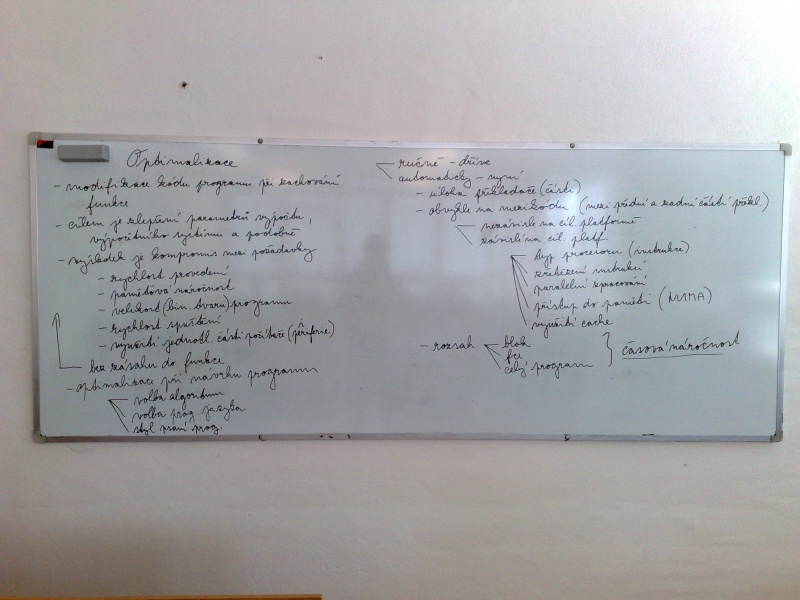 Optimalizace
- modifikace kódu programu při zachování
funkce
- cílem je zlepšení parametrů výpočtu,
výpočetního systému a podobně
- výsledek je kompromis mezi požadavky
- rychlost provedení
- paměťová náročnost
- velikost (bin. tvaru) programu
- rychlost spuštění
- využití jednotl. částí počítače (periferie)
bez zásahu do funkce
- optimalizace při návrhu programu
volba algoritmu
volba prog. jazyka
styl psaní prog.
ručně - dříve
automaticky - nyní
- úloha překladače (části)
- obvykle na mezikódu (mezi přední a zadní částí překl.)
nezávislé na cíl. platformě
závislé na cíl. platf.
typ procesoru (instrukce)
zřetězení instrukcí
paralelní zpracování
přístup do paměti (NUMA)
využití cache
- rozsah
blok
fce
celý program
časová náročnost